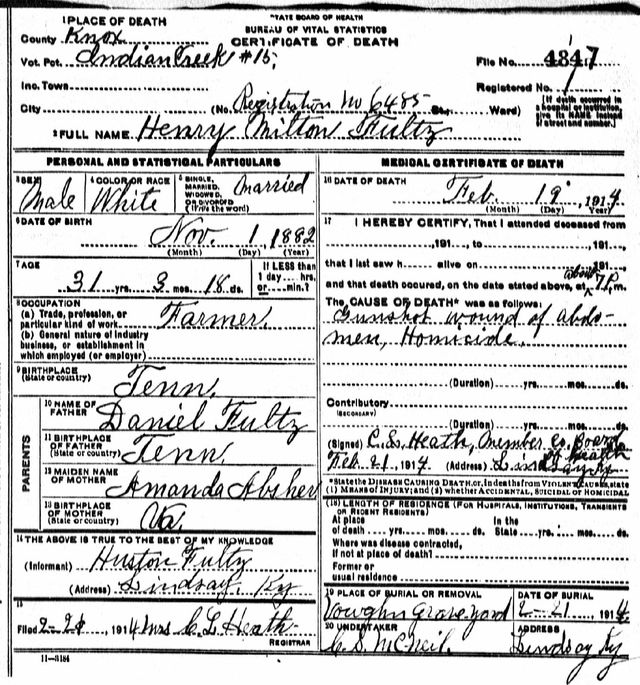 STATE BOARD OF HEALTH
BUREAU OF VITAL STATISTICS
CERTIFICATE OF DEATH
1 PLACE OF DEATH
County Knox
Vot. Pct. Indian Creek #15;
File No. 4347
Inc. Town
Registered No. 1
City (No. Registration No 6485 St.; Ward)
(If death occurred in a hospital or institution, give its NAME instead of street and number.)
2 FULL NAME Henry Milton Fultz
PERSONAL AND STATISTICAL PARTICULARS
3 SEX Male
4 COLOR OR RACE White
5 SINGLE, MARRIED, WIDOWED, OR DIVORCED (Write the word) Married
6 DATE OF BIRTH
Nov. 1, 1882
(Month) (Day) (Year)
7 AGE
31 yrs. 3 mos. 18 ds.
If LESS than 1 day ... hrs. or ... min.?
8 OCCUPATION
(a) Trade, profession, or particular kind of work Farmer.
(b) General nature of industry business, or establishment in which employed (or employer)
9 BIRTHPLACE
(State or country) Tenn.
PARENTS
10 NAME OF FATHER Daniel Fultz
11 BIRTHPLACE OF FATHER (State or country) Tenn.
12 MAIDEN NAME OF MOTHER Amanda Absher
13 BIRTHPLACE OF MOTHER (State or country) Va
14 THE ABOVE IS TRUE TO THE BEST OF MY KNOWLEDGE
(Informant) Huston Fultz
(Address) Lindsay, Ky
15
Filed 2-21, 1914 Mrs C. L. Heath
REGISTRAR
11-3184
MEDICAL CERTIFICATE OF DEATH
16 DATE OF DEATH
Feb. 19 1914
(Month) (Day) Year)
17 I HEREBY CERTIFY, That I attended deceased from
, 191 , to , 191 ,
that I last saw h alive on , 191 ,
and that death occured, on the date stated above, at about 7 P. m.
The CAUSE OF DEATH* was as follows:
Gunshot wound of Abdo-
men, Homicide.
(Duration) yrs. mos. ds.
Contributory
(SECONDARY)
(Duration) yrs. mos. ds.
(Signed) C. L. Heath, Member Co. Board of Health
Feb 21, 1914 (Address) Lindsay Ky
*State the DISEASE CAUSING DEATH, or, in deaths from VIOLENT CAUSES, state
(1) MEANS OF INJURY; and (2) whether ACCIDENTAL, SUICIDAL OR HOMICIDAL
(18) LENGTH OF RESIDENCE (FOR HOSPITALS, INSTITUTIONS, TRANSIENTS OR RECENT RESIDENTS)
At place of death yrs. mos. ds. In the State yrs. mos. ds.
Where was disease contracted,
If not at place of death?
Former or
usual residence
19 PLACE OF BURIAL OR REMOVAL
Vaughn Graveyard
DATE OF BURIAL
2-21 1914
20 UNDERTAKER
C. S. McNeil.
ADDRESS
Lindsay Ky